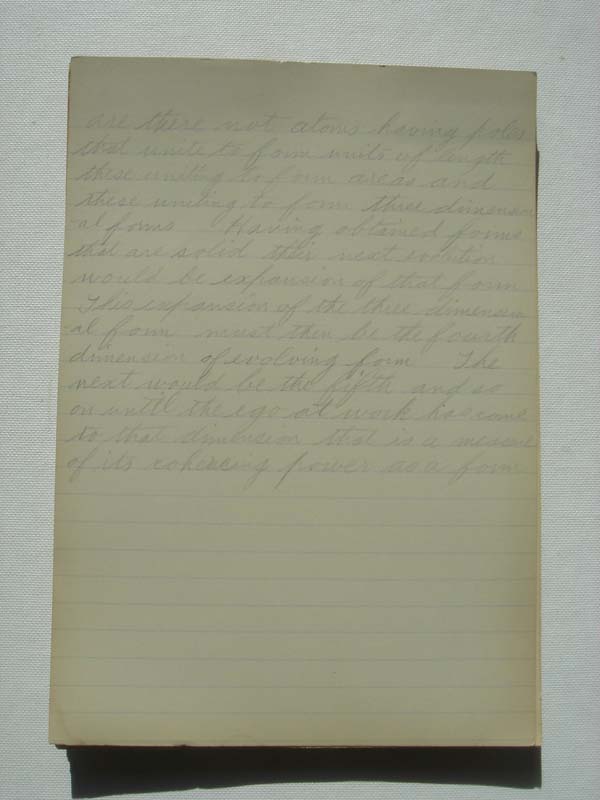 are there not atoms having poles
that unite to form units of length
these uniting to form areas and
these uniting to form three dimension
-al forms Having obtained forms
that are solid their next evolution
would be expansion of that form
This expansion of the three dimension
-al form must then be the fourth
dimension of evolving form The
next would be the fifth and so
on until the ego at work has come
to that dimension that is a measure
of its cohereing power as a form